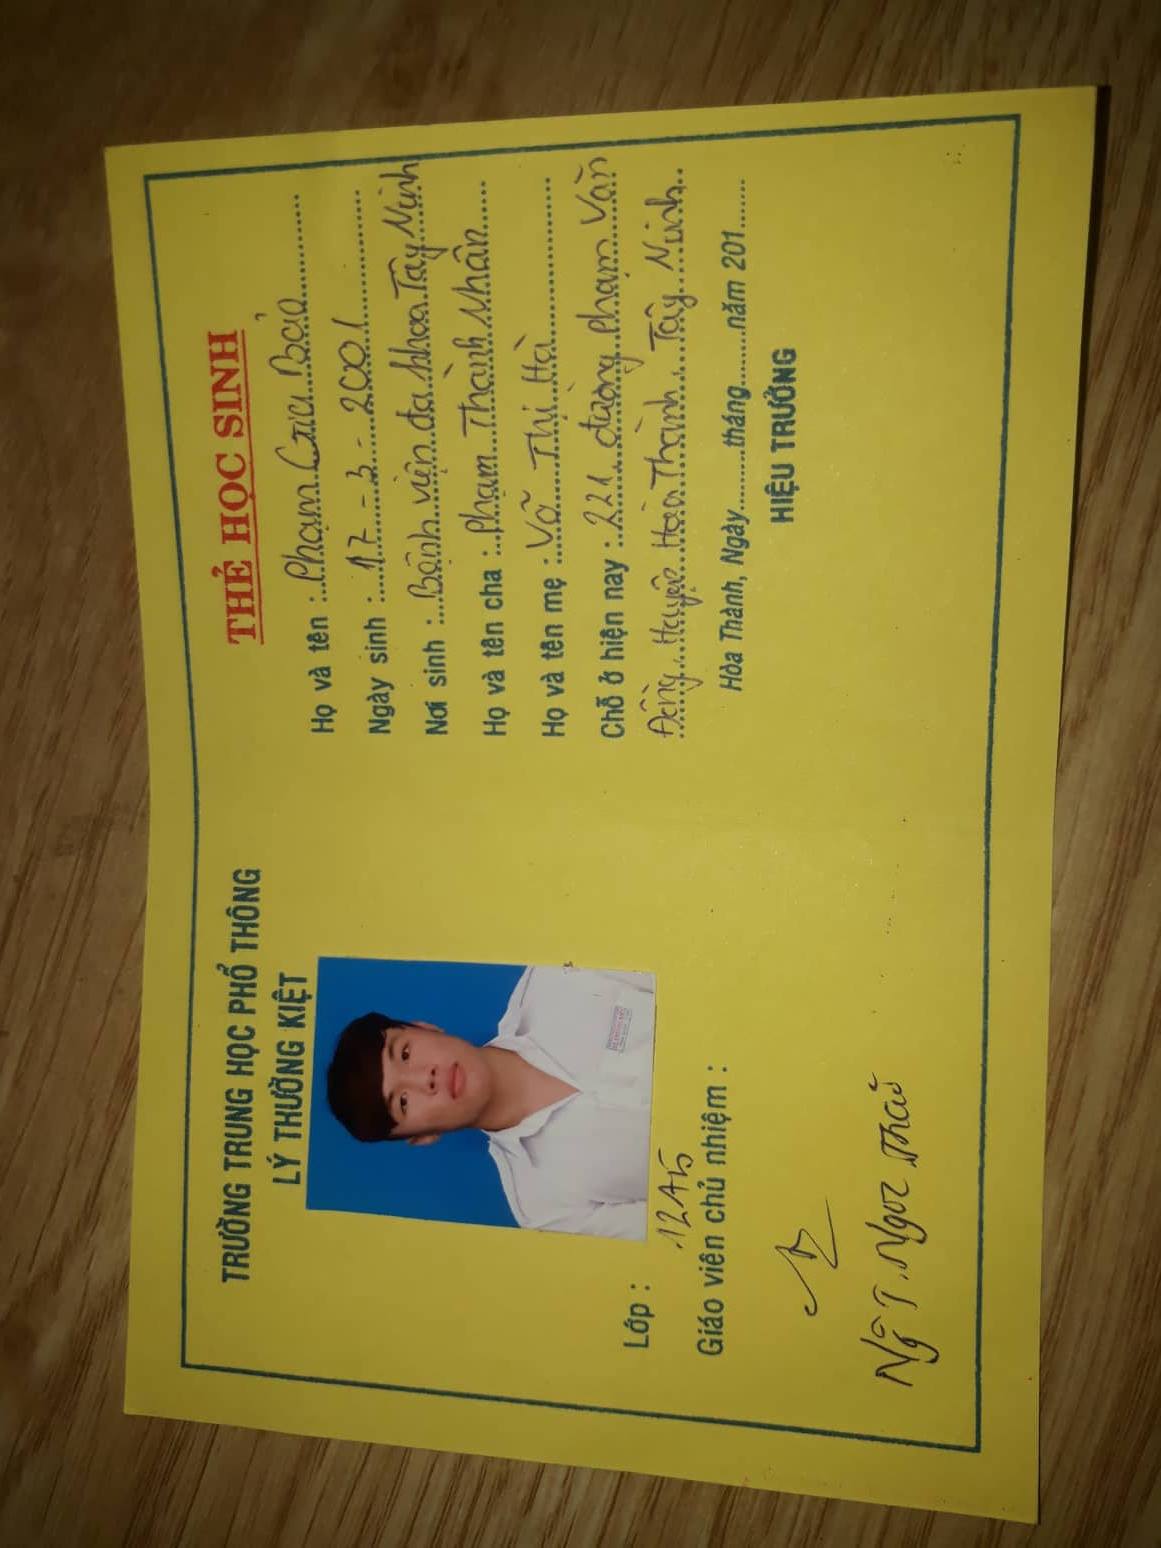 TRƯỜNG TRUNG HỌC PHỔ THÔNG
LÝ THƯỜNG KIỆT
Lớp : 12A5
Giáo viên chủ nhiệm :
Ngô T. Ngọc Thảo
THẺ HỌC SINH
Họ và tên : Phạm Gia Bảo
Ngày sinh : 17 - 3 - 2001
Nơi sinh : Bệnh viện đa khoa Tây Ninh
Họ và tên cha : Phạm Thành Nhân
Họ và tên mẹ : Võ Thị Hà
Chỗ ở hiện nay : 221 đường Phạm Văn
Đồng Huyện Hòa Thành Tây Ninh
Hòa Thành, Ngày.........tháng.........năm 201......
HIỆU TRƯỞNG